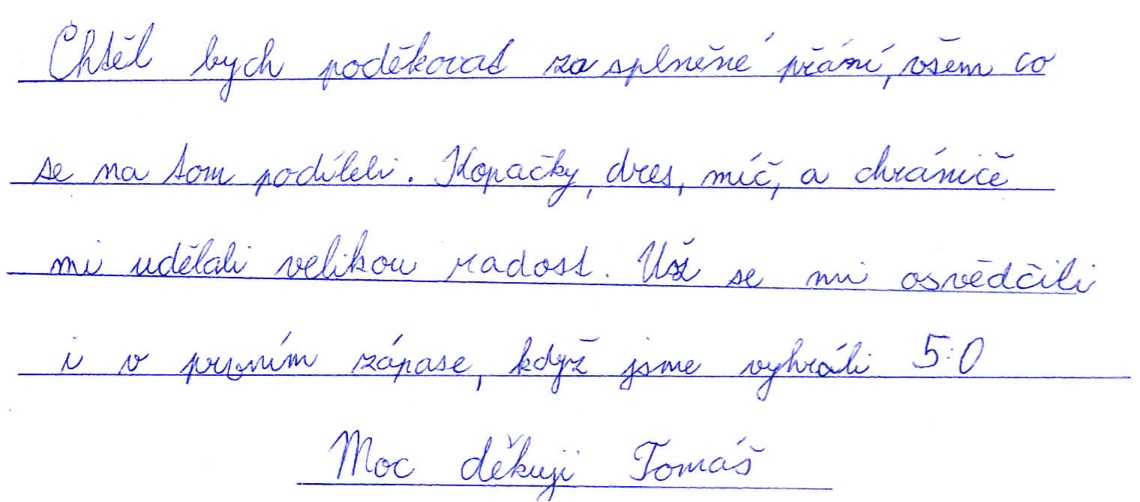 Chtěl bych poděkovat za splněné přání, všem co
se na tom podíleli. Kopačky, dres, míč, a chrániče
mi udělali velikou radost. Už se mi osvědčili
i v prvním zápase, když jsme vyhráli 5:0
Moc děkuji Tomáš